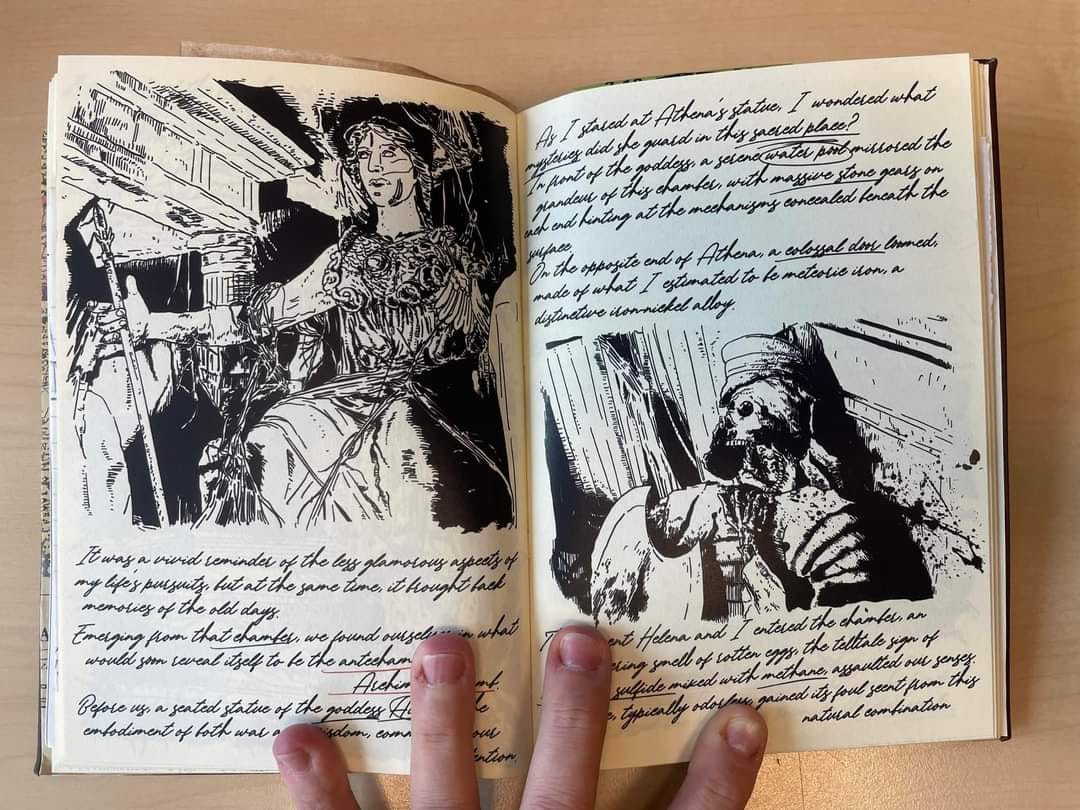 It was a vivid reminder of the less glamorous aspects of
my life's pursuits, but at the same time, it brought back
memories of the old days.
Emerging from that chamber, we found ourselves in what
would soon reveal itself to be the antecham
Archim
Before us, a seated statue of the goddess
embodiment of both war a isdom, com our
ention.
As I stared at Athena's statue, I wondered what
mysteries did she guard in this sacred place?
In front of the goddess, a serene water pool mirrored the
grandeur of this chamber, with massive stone gears on
each end hinting at the mechanisms concealed beneath the
surface.
On the opposite end of Athena, a colossal door loomed,
made of what I estimated to be meteoric iron, a
distinctive iron-nickel alloy.
ent Helena and I entered the chamber, an
ering smell of rotten eggs, the telltale sign of
sulfide mixed with methane, assaulted our senses.
typically odorless, gained its foul scent from this
natural combination